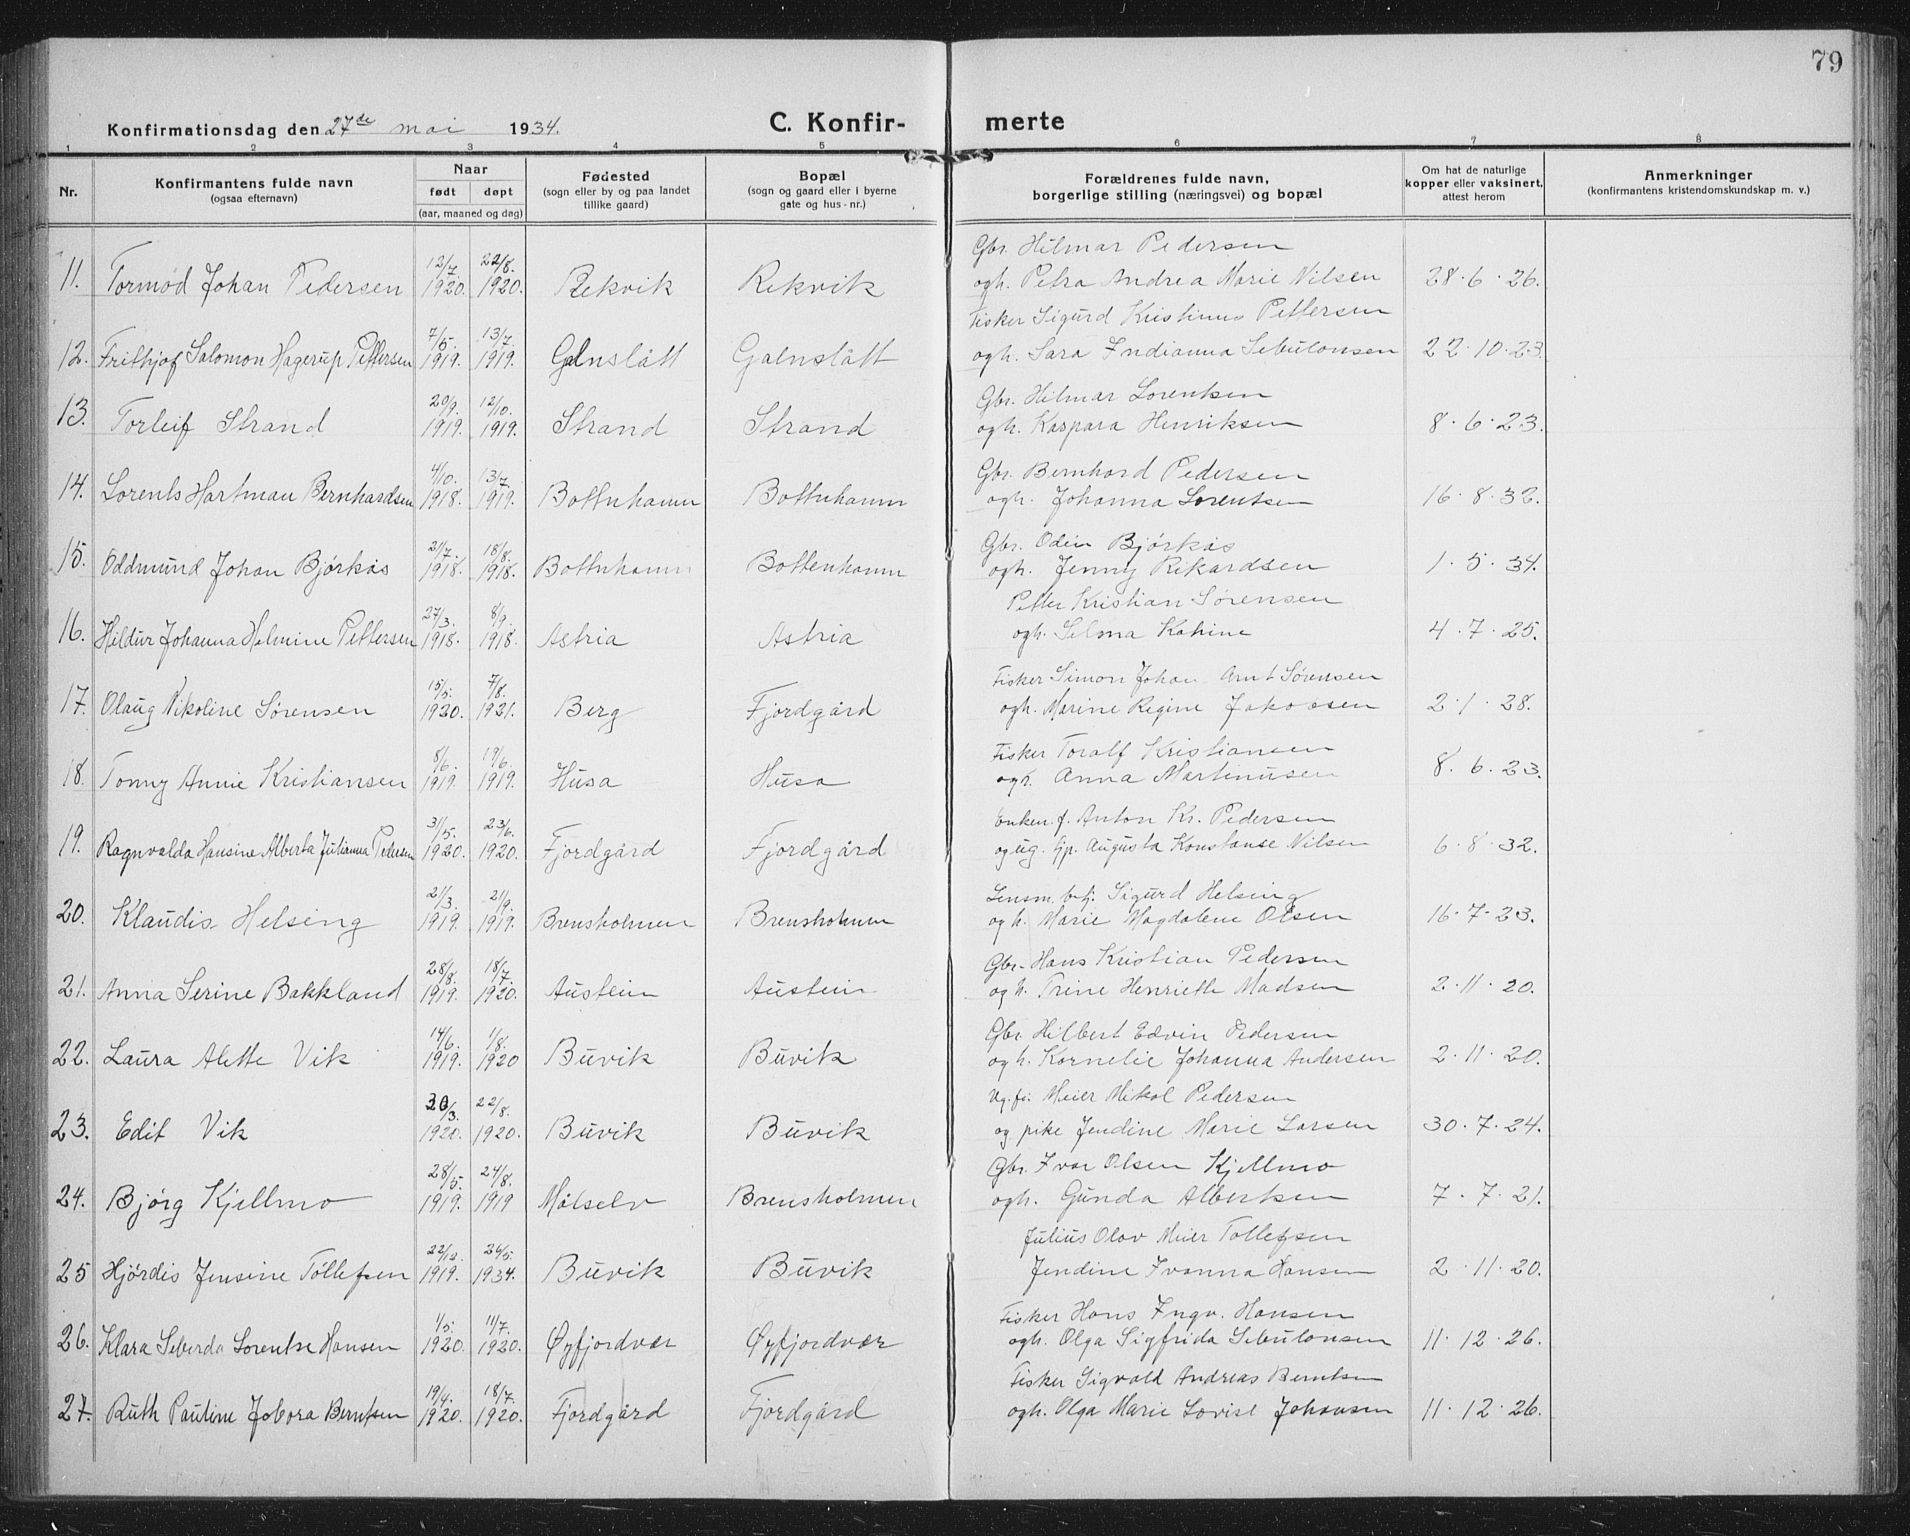 79
Konfirmationsdag den 27de mai 1934.
C. Konfir- merte
1 2 3 4 5 6 7 8
Nr.
Konfirmantens fulde navn
(ogsaa efternavn)
Naar
født døpt
(aar, maaned og dag)
Fødested
(sogn eller by og paa landet
tillike gaard)
Bopæl
(sogn og gaard eller i byerne
gate og hus-nr.)
Forældrenes fulde navn,
borgerlige stilling (næringsvei) og bopæl
Om hat de naturlige
kopper eller vaksinert,
attest herom
Anmerkninger
(konfirmantens kristendomskundskap m. v.)
12/7. 22/8. Gbr. Hilmar Pedersen
11. Tormod Johan Pedersen 1920. 1920. Rekvik Rekvik ogh. Petra Andrea Marie Nilsen 28.6.26.
7/5. 13/7. Fisker Sigurd Kristinus Pettersen
12. Frithjof Salomon Hagerup Pettersen 1919. 1919. Galnslått Galnslått ogh. Sara Indianna Sebulonsen 22.10.23.
20/9. 12/10. Gbr. Hilmar Lorentsen
13. Torleif Strand 1919. 1919. Strand Strand ogh. Kaspara Henriksen 8.6.23.
4/10. 13/7. Gbr. Bernhard Pedersen
14. Lorents Hartman Bernhardsen 1918. 1919. Bottnhamn Bottnhamn ogh. Johanna Lorentsen 16.8.32.
21/7. 18/8. Gbr. Odin Bjørkås
15. Oddmund Johan Bjørkås 1918. 1918. Bottnhamn Bottenhamn ogh. Jenny Rikardsen 1.5.34.
27/3. 8/9. Petter Kristian Sørensen
16. Hildur Johanna Helmine Pettersen 1918. 1918. Astria Astria ogh. Selma Katrine 4.7.25.
15/5. 7/8. Fisker Simon Johan Arnt Sørensen
17. Olaug Nikoline Sørensen 1920. 1921. Berg Fjordgård ogh. Marine Regine Jakobsen 2.1.28.
8/6. 19/6. Fisker Toralf Kristiansen
18. Tonny Annie Kristiansen 1919. 1919. Husa Husa ogh. Anna Martinusen 8.6.23.
31/5. 23/6. Enkem. f. Anton Kr. Pedersen
19. Ragnvalda Hansine Alberta Julianna Pedersen 1920. 1920. Fjordgård Fjordgård og ug. Gp. Augusta Konstanse Nilsen 6.8.32.
21/3. 21/9. Lensm. btj. Sigurd Helsing
20. Klaudis Helsing 1919. 1919. Brensholmen Brensholmen og h. Marie Magdalene Olsen 16.7.23.
28/8. 18/7. Gbr. Hans Kristian Pedersen
21. Anna Serine Bakkland 1919. 1920. Austein Austein og h. Trine Henriette Madsen 2.11.20.
14/6. 1/8. Gbr. Hilbert Edvin Pedersen
22. Laura Alette Vik 1919. 1920 Buvik Buvik og h. Kornelie Johanna Andersen 2.11.20.
20/3. 22/8. Ug. fi. Meier Mikal Pedersen
23. Edit Vik 1920. 1920. Buvik Buvik og pike Jendine Marie Larsen 30.7.24.
28/5. 24/8. Gbr. Ivar Olsen Kjellmo
24. Bjørg Kjellmo 1919. 1919 Målselv Brensholmen ogh. Gunda Albertsen 7.7.21.
22/12. 26/5. Julius Olav Meier Tollefsen
25 Hjørdis Jensine Tollefsen 1919. 1934. Buvik Buvik Jendine Ivanna Hansen 2.11.20.
1/5. 11/7. Fisker Hans Ingv. Hansen
26. Klara Seberda Lorentse Hansen 1920. 1920. Øyfjordvær Øyfjordvær ogh. Olga Sigfrida Sebulonsen 11.12.26.
19/4. 18/7. Fisker Sigvald Andreas Berntsen
27. Ruth Pauline Jobora Berntsen 1920. 1920. Fjordgård Fjordgård ogh. Olga Marie Lovise Johansen 11.12.26.